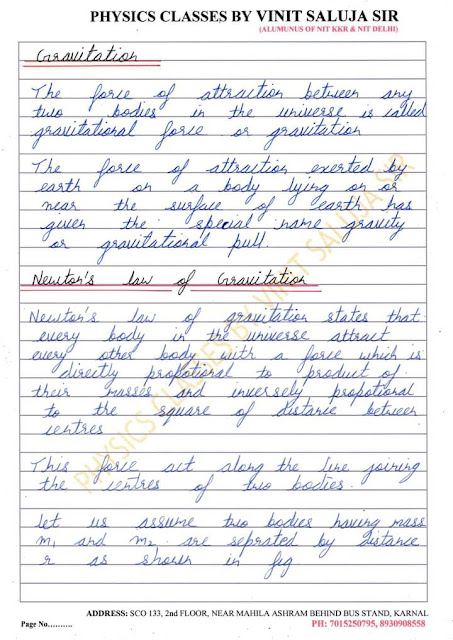 PHYSICS CLASSES BY VINIT SALUJA SIR
(ALUMUNUS OF NIT KKR & NIT DELHI)
Gravitation
The force of attraction between any
two bodies in the universe is called
gravitational force or gravitation
The force of attraction exerted by
earth on a body lying on or
near the surface of earth has
given the special name gravity
or gravitational pull.
Newton's law of Gravitation
Newton's law of gravitation states that
every body in the universe attract
every other body with a force which is
directly propotional to product of
their masses and inversely propotional
to the square of distance between
centres
This force act along the line joining
the centres of two bodies.
let us assume two bodies having mass
m₁ and m₂ are seprated by distance
r as shown in fig.
PHYSICS CLASSES BY VINIT SALUJA SIR
ADDRESS: SCO 133, 2nd FLOOR, NEAR MAHILA ASHRAM BEHIND BUS STAND, KARNAL
Page No.......... PH: 7015250795, 8930908558